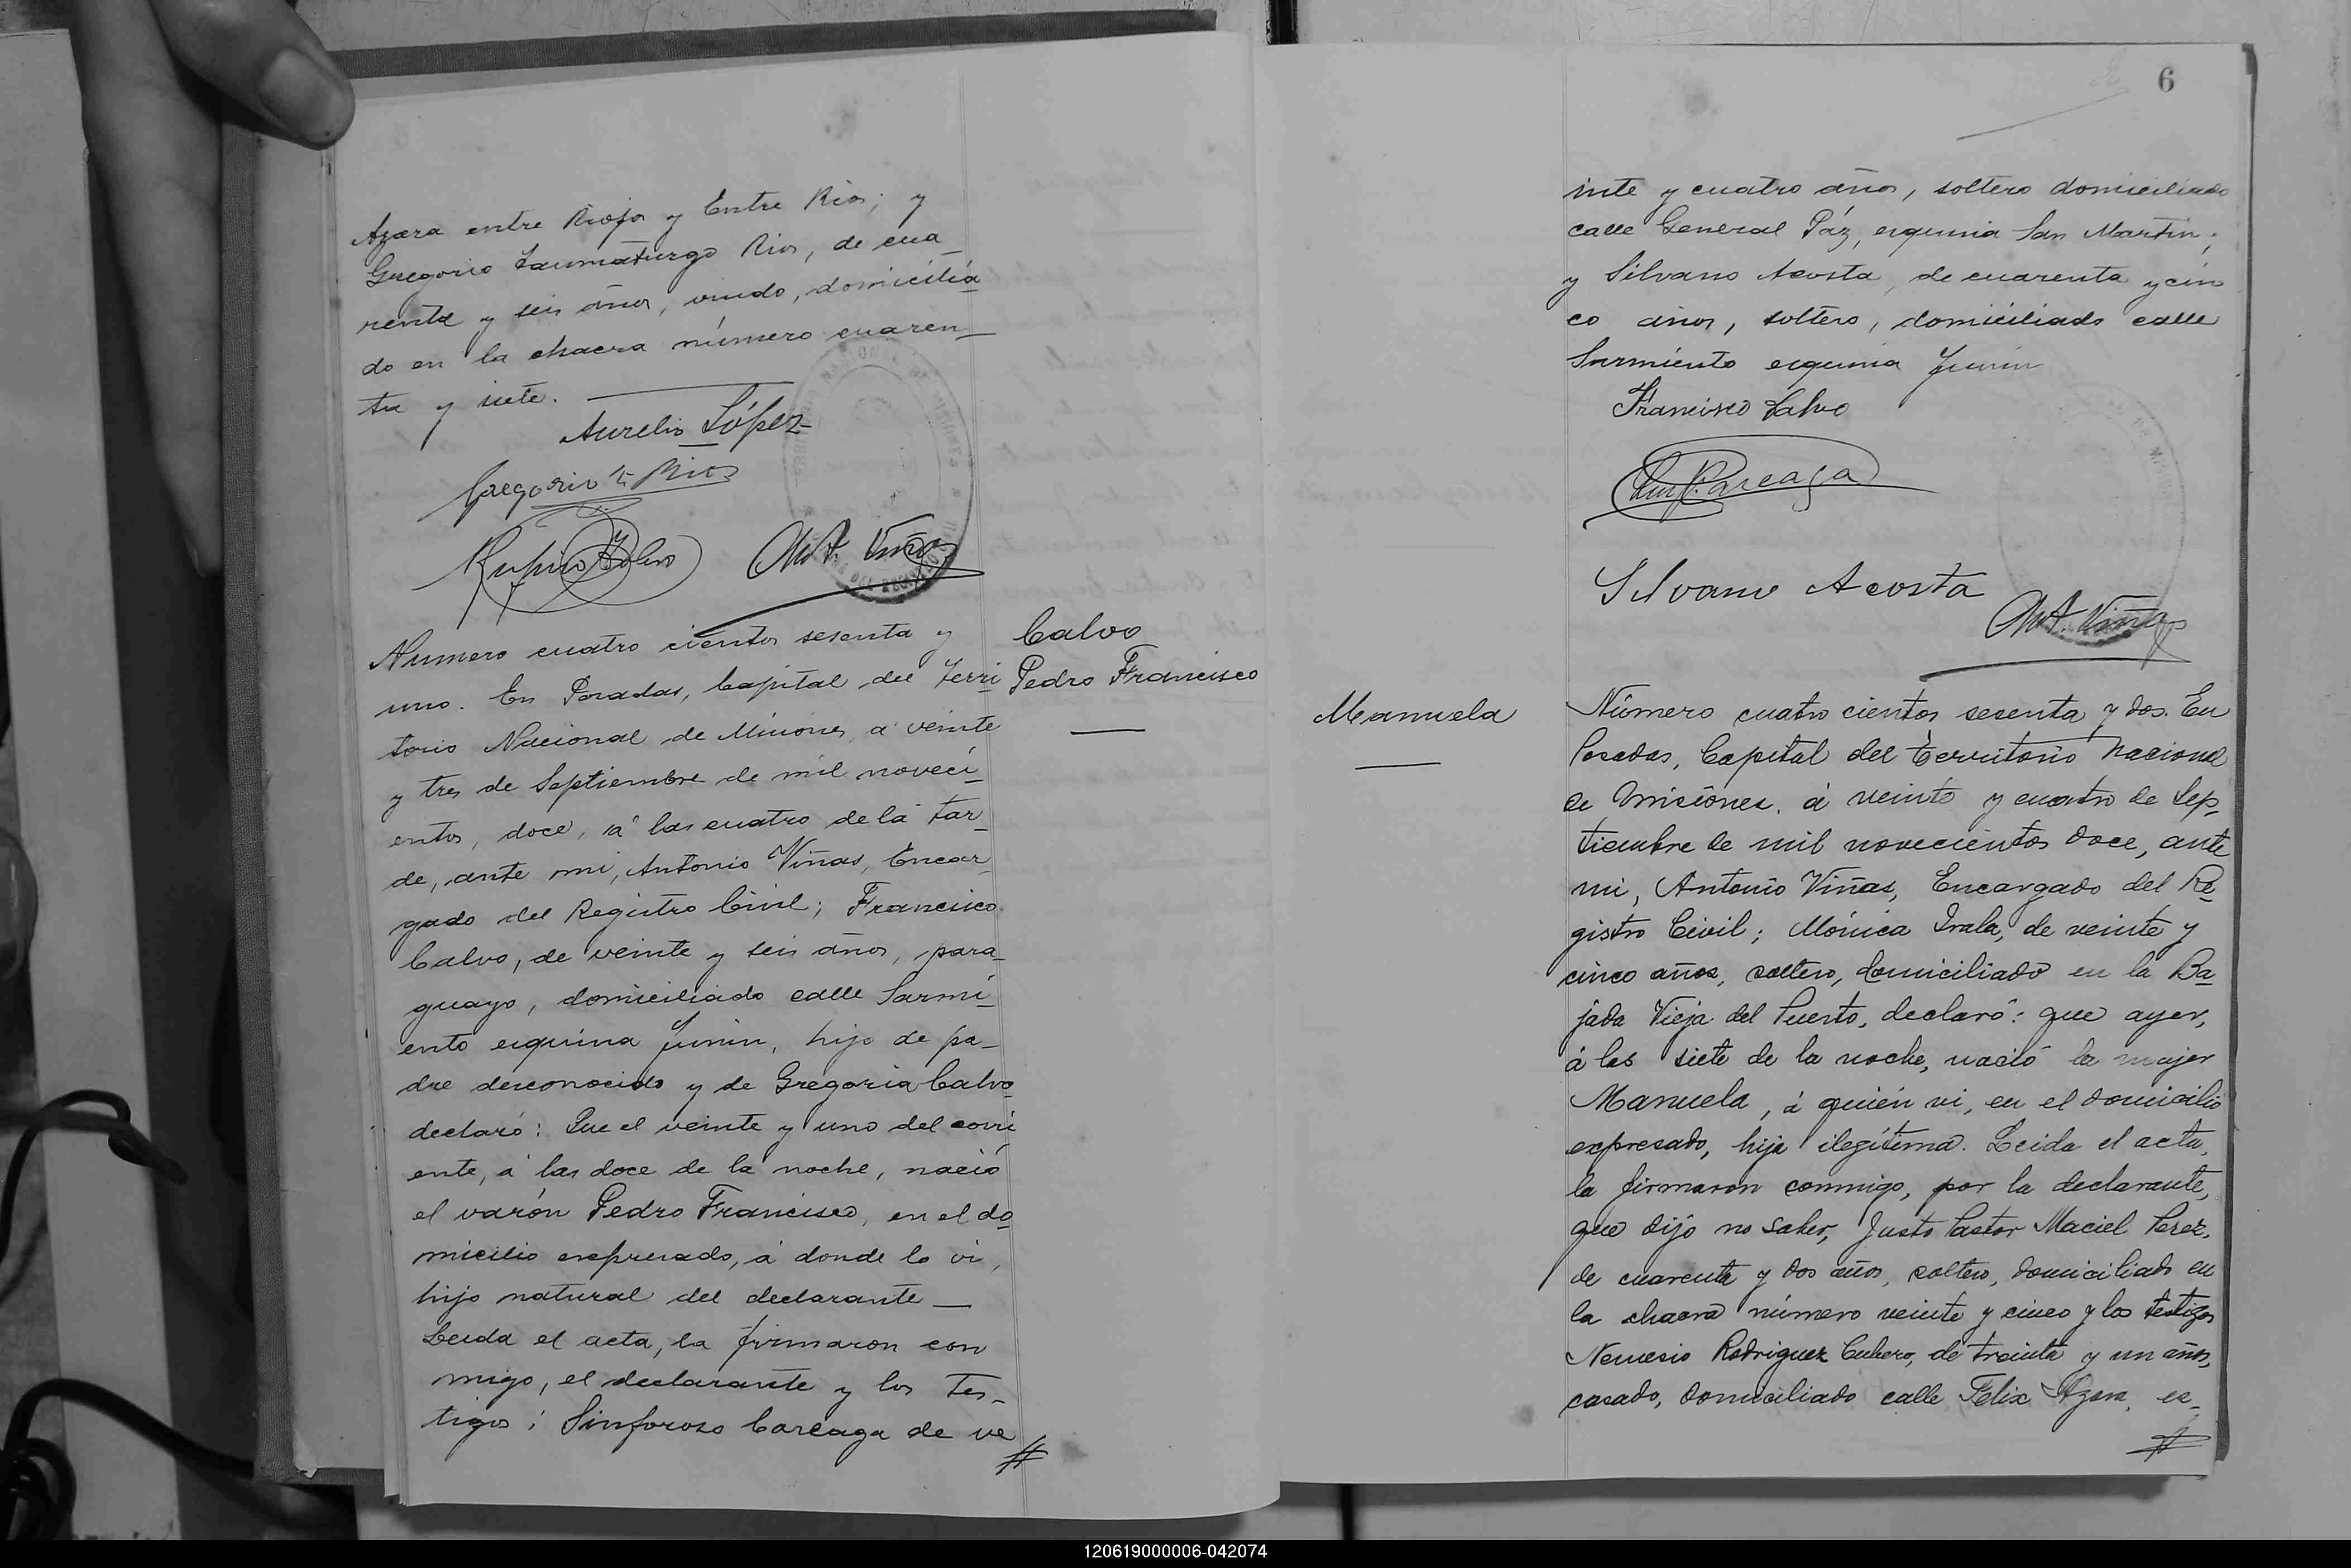 Azara entre Rioja y Entre Rios; y
Gregorio Taumaturgo Rios, de cua
renta y seis años, viudo, domicilia
do en la chacra número cuaren
ta y siete.
Aurelio López
Gregorio T. Rios
Rufino
Ant. Viñas
Calvo
Pedro Francisco
Numero cuatro cientos sesenta y
uno. En Posadas, Capital del Terri
torio Nacional de Misiones, á veinte
y tres de Septiembre de mil noveci
entos, doce, á las cuatro de la tar
de, ante mi, Antonio Viñas, Encar
gado del Registro Civil; Francisco
Calvo, de veinte y seis años, para
guayo, domiciliado calle Sarmi
ento esquina Junin, hijo de pa
dre desconocido y de Gregoria Calvo
declaró: Que el veinte y uno del corri
ente, á las doce de la noche, nació
el varón Pedro Francisco, en el do
micilio expresado, á donde lo vi,
hijo natural del declarante
Leida el acta, la firmaron con
migo, el declarante y los tes-
tigos; Sinforoso Careaga de ve
6
inte y cuatro años, soltero domiciliado
calle General Páz, esquina San Martin;
y Silvano Acosta, de cuarenta y cin
co años, soltero, domiciliado calle
Sarmiento esquina Junin
Francisco Calvo
Careaga
Silvano Acosta
Ant. Viñas
Manuela
Número cuatro cientos sesenta y dos. En
Posadas, Capital del Territorio Nacional
de Misiones, á veinte y cuatro de Sep-
tiembre de mil novecientos doce, ante
mi, Antonio Viñas, Encargado del Re
gistro Civil; Mónica Irala, de veinte y
cinco años, soltero, domiciliado en la Ba
jada Vieja del Puerto, declaró: que ayer,
á las siete de la noche, nació la mujer
Manuela, á quién vi, en el domicilio
expresado, hija ilegítima. Leida el acta,
la firmaron conmigo, por la declarante,
que dijo no saber, Justo Pastor Maciel Perez,
de cuarenta y dos años, soltero, domiciliado en
la chacra número veinte y cinco y los testigos
Nemesio Rodriguez Cubero, de treinta y un años,
casado, domiciliado calle Felix Azara, es-
120619000006-042074